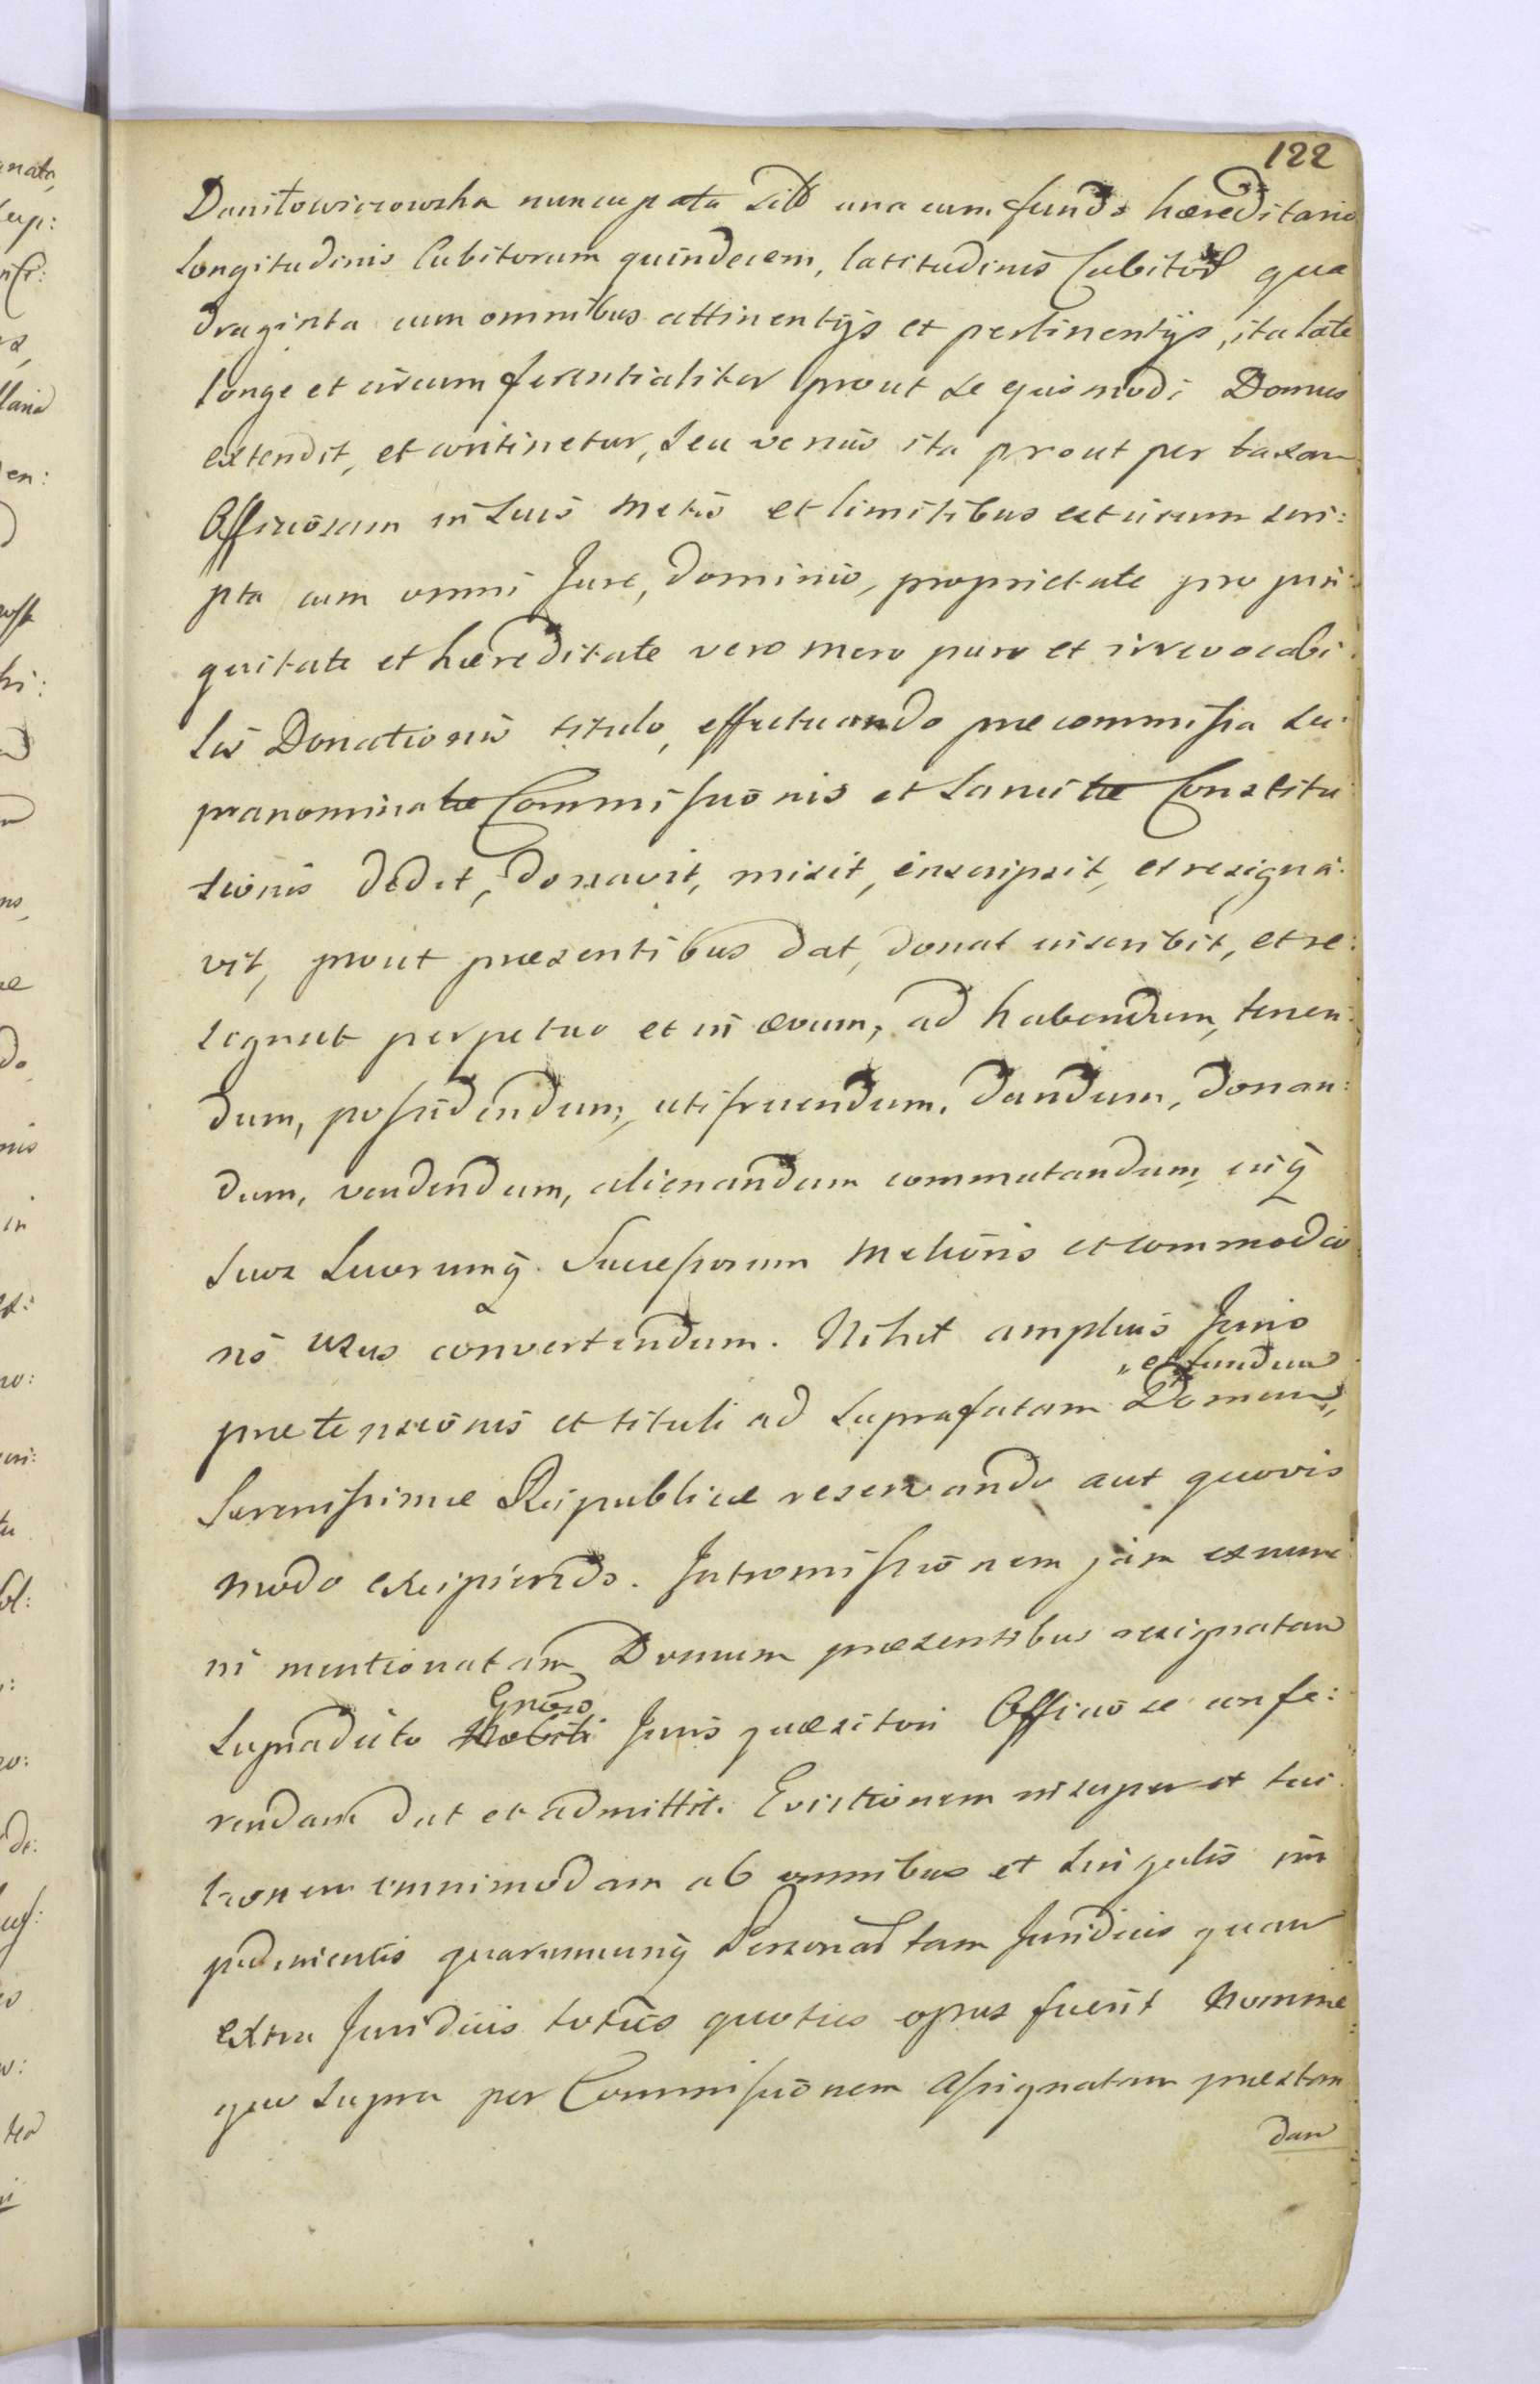 122
Daniłowiczowska nuncupata sita una cum fundo hæreditario
Longitudinis Cubitorum quindecem, latitudinis Cubitor qua
draginta cum omnibus attinentijs et pertinentijs, ita late
longe et circumferentialiter prout se ejusmodi Domus
extendit, et continetur, seu verius ita prout per taxam
Officiosam in suis metis et limitibus est circum scri:
pta cum omni Jure, dominio, proprietate pro pin
quitate et hæreditate vero mero puro et irrevocabi
lis Donationis titulo, effectuando præcommissa su:
pranominatæ Commissionis et Sancitæ Constitu
tionis dedit, donavit, inscripsit, et resigna:
vit, prout præsentibus dat, donat inscribit, et re:
signat perpetuo et in ævum, ad habendum, tenen:
dum, possidendum, utifruendum, dandum, donan:
dum, vendendum, alienandum commutandum, inq
suos suorumq. Successorum melioris et commodio
ris usus convertendum. Nihil amplius Juris
„et fundum
prætensionis et tituli ad suprafatam Domum„
Serenissimæ Reipublicæ reservando aut quovis
modo excipiendo. Intromissionem jam ex nunc
in mentionatam Domum præsentibus resignatam
Gnōso
supradicto Nobili Juris quæsitori Officiose confe:
rendam dat et admittit. Evictionem insuper et tui
tionem omnimodam ab omnibus et singulis im
pedimentis quarumcunq Personar tam Juridicis quam
extra Juridicis toties quoties opus fuerit Nomine
quo supra per Commissionem assignatam præstan
dam